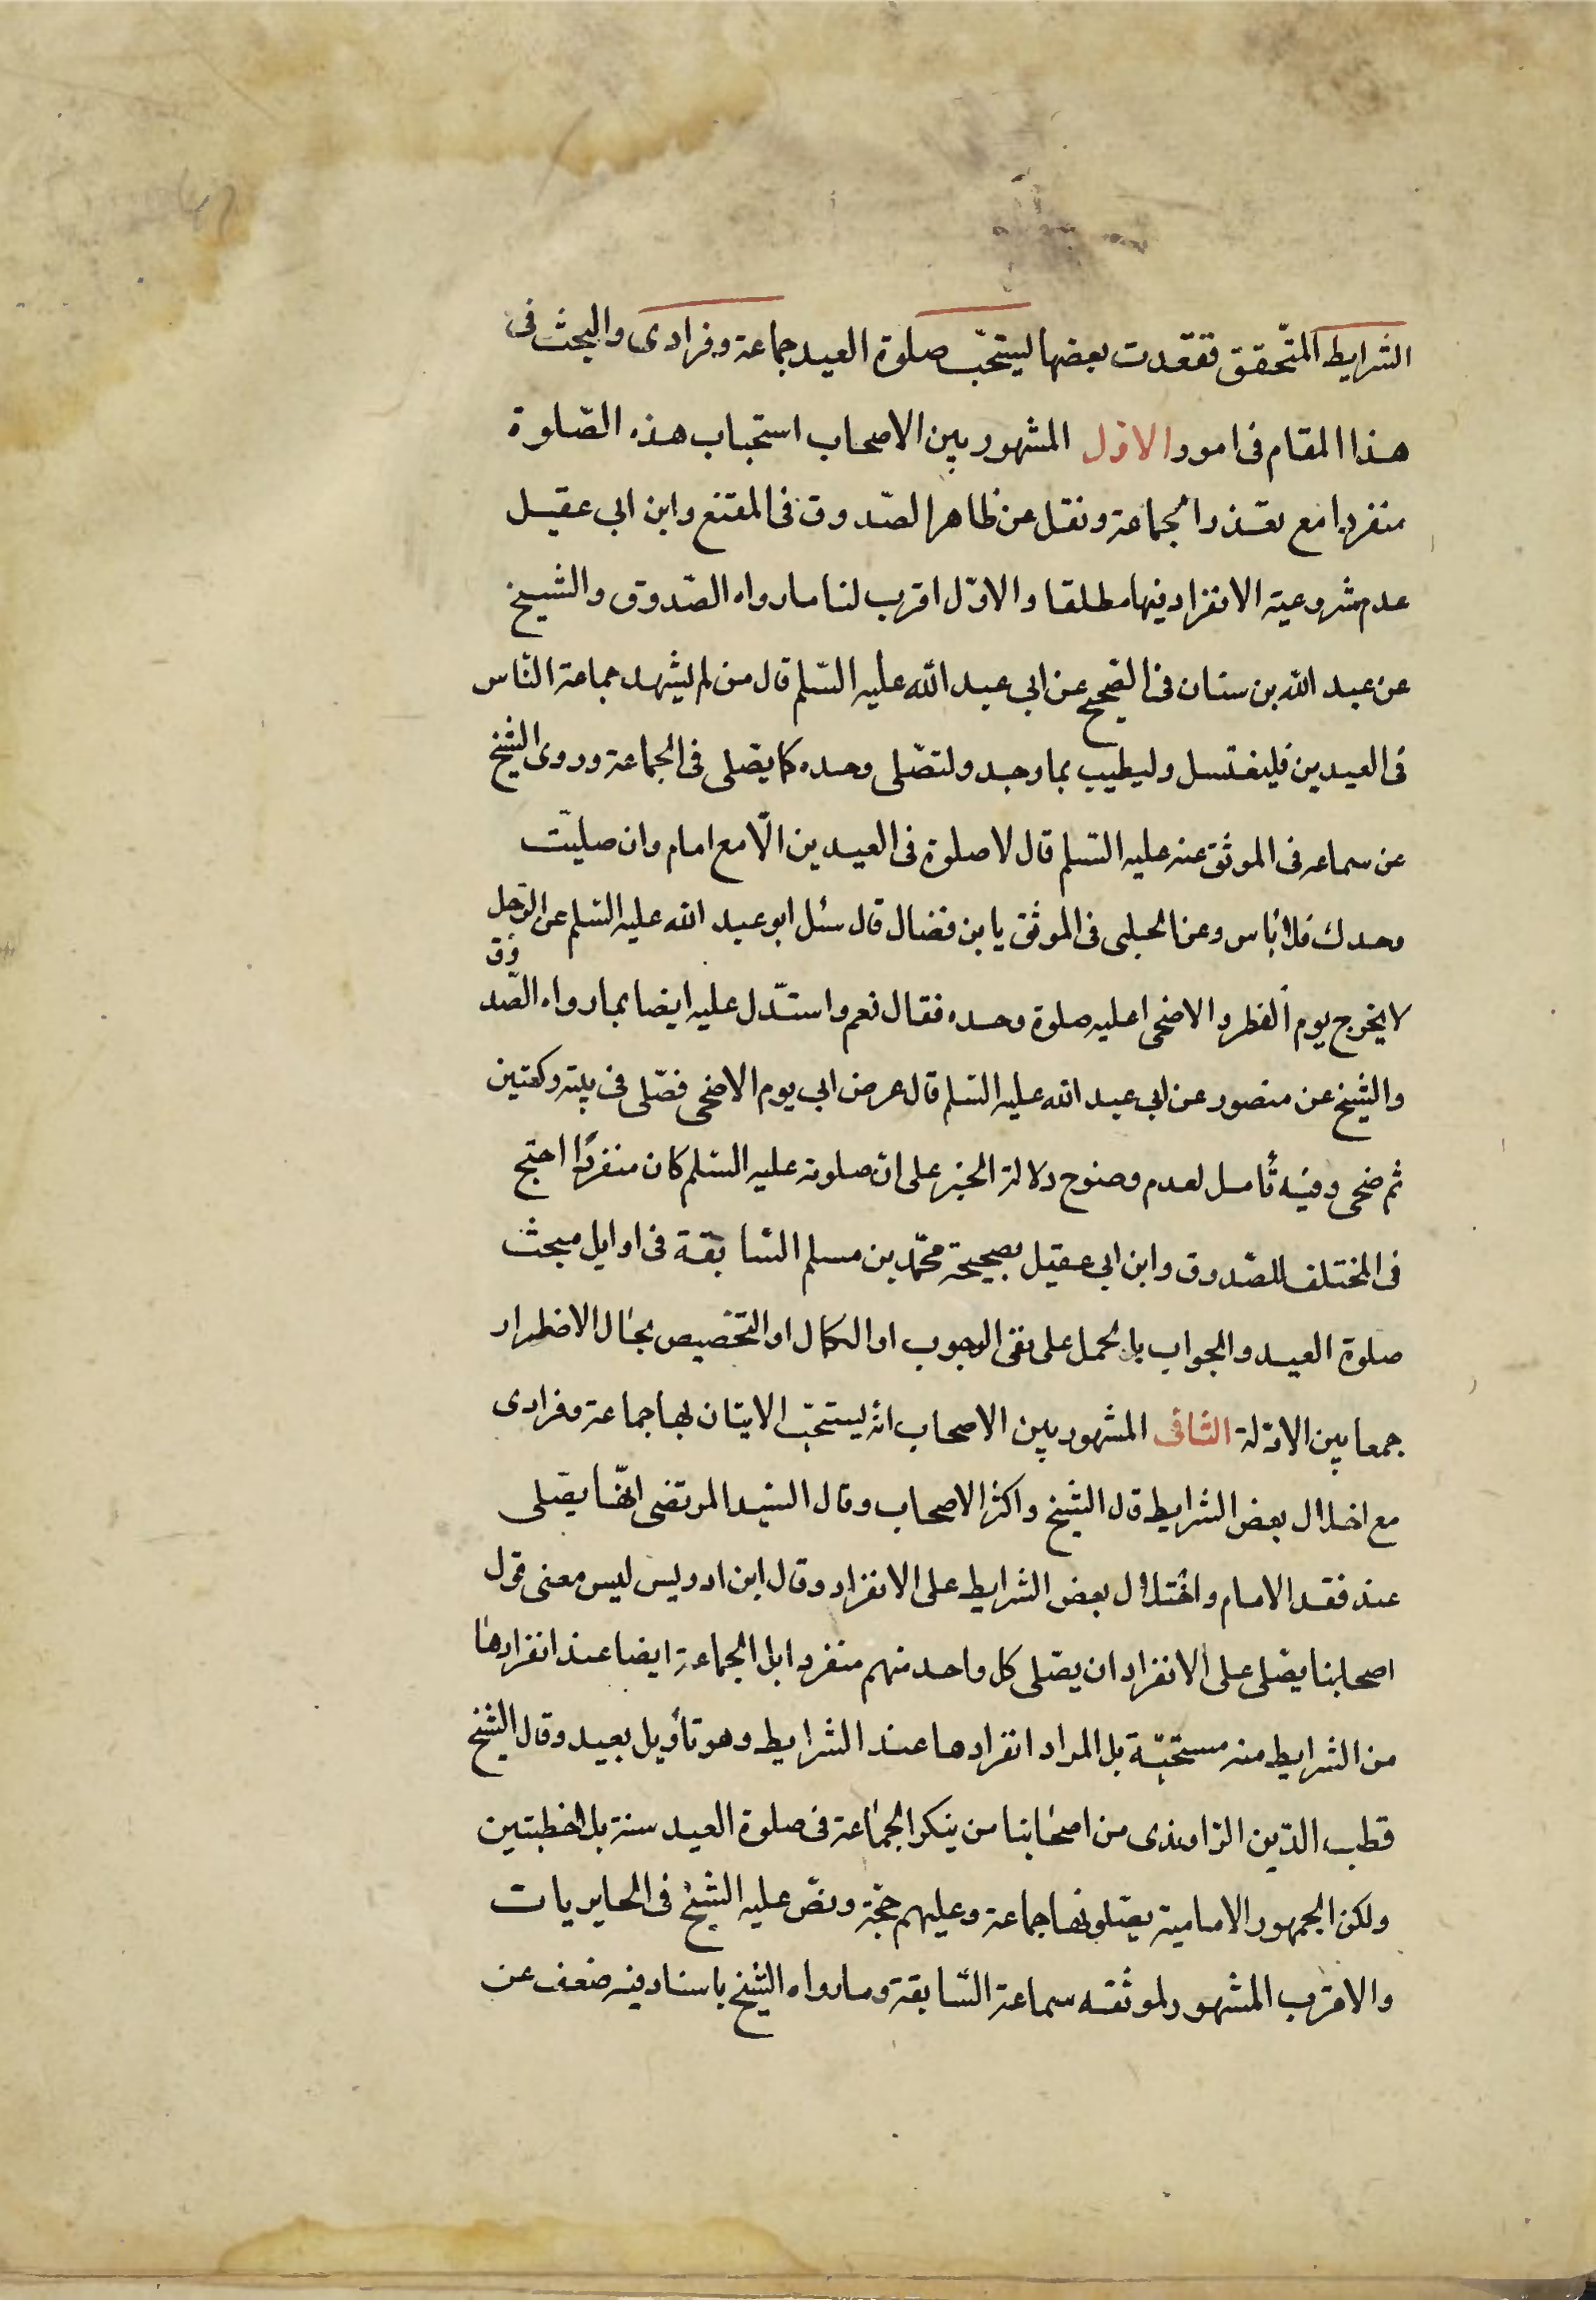 الشرايط المتحقق ففقدت بعضها ليستحبّ صلوة العيد جماعة وفرادى والبحث فى
هذا المقام فى امور الاوّل المشهور بين الاصحاب استحباب هذه الصّلوة
منفردا مع تعذر الجماعة ونقل عن ظاهر الصّدوق فى المقنع وابن ابي عقيل
عدم مشروعية الانفراد فيها مطلقا والاوّل اقرب لنا ما رواه الصّدوق والشيخ
عن عبد الله بن سنان فى الصّحيح عن ابي عبد الله عليه السّلم قال من لم يشهد جماعة النّاس
فى العيدين فليغتسل وليطيب بما وجد ولتصّلى وحده كما يصّلى فى الجماعة وروى الشيخ
عن سماعه فى الموثق عنه عليه السّلم قال لا صلوة فى العيدين الّا مع امام وان صليّت
وحدك فلا بأس وعن الحلبى فى الموثق يابن فضال قال سئل ابو عبد الله عليه السّلم عن الرّجل
لا يخرج يوم الفطر والاضحى اعليه صلوة وحده فقال نعم واستدّل عليه ايضا بما رواه الصّدوق
والشيخ عن منصور عن ابي عبد الله عليه السّلم قال عرض ابي يوم الاضحى فصّلى فى بيته ركعتين
ثم ضحى وفيه تأمل لعدم وضوح دلالة الخبر على انّ صلوته عليه السّلم كان منفردًا احتج
فى المختلف للصّدوق وابن ابي عقيل بصحيحة محمّد بن مسلم السّابقة فى اوايل مبحث
صلوة العيد والجواب بالحمل على نفى الوجوب او الكمال او التخصيص بحال الاضطرار
جمعا بين الادّلة الثانى المشهور بين الاصحاب انّه ليستحبّ الايتان بها جماعة وفرادى
مع اخلال بعض الشرايط قال الشيخ واكثر الاصحاب وقال السّيد المرتضى انهّا يصّلى
عند فقد الامام واختلال بعض الشرايط على الانفراد وقال ابن ادريس ليس معنى قول
اصحابنا يصّلى على الانفراد ان يصّلى كل واحد منهم منفردا بل الجماعة ايضا عند انفرادها
من الشرايط منه مستحبّة بل المراد انفرادها عند الشرايط وهو تأويل بعيد وقال الشيخ
قطب الدّين الرّاوندى من اصحابنا من ينكر الجماعة فى صلوة العيد سنة بلا خطبتين
ولكن الجمهور الامامية يصّلونها جماعة وعليهم حجّة ونصّ عليه الشيخ فى الحايريات
والاقرب المشهور لموثقه سماعة السّابقة وما رواه الشيخ باسناد فيه ضعف عن